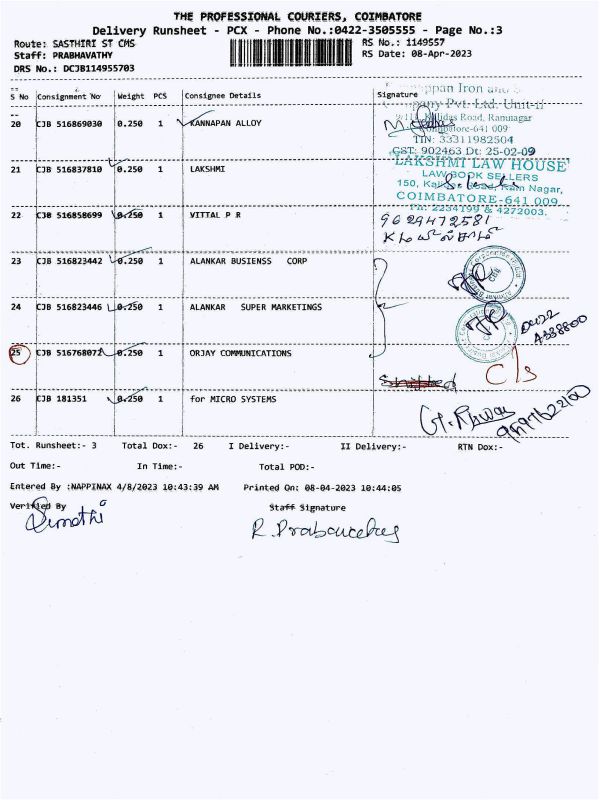 THE PROFESSIONAL COURIERS, COIMBATORE
Delivery Runsheet - PCX - Phone No.:0422-3505555 - Page No.:3
Route: SASTHIRI ST CMS RS No.: 1149557
Staff: PRABHAVATHY RS Date: 08-Apr-2023
DRS No.: DCJB114955703
S No Consignment No Weight PCS Consignee Details Signature
Iron and
Pvt. Ltd. Unit-II
Kalidas Road, Ramnagar
20 CJB 516869030 0.250 1 KANNAPAN ALLOY
Coimbatore-641 009
TIN: 33311982504
CST: 902463 Dt: 25-02-09
LAKSHMI LAW HOUSE
21 CJB 516837810 0.250 1 LAKSHMI
LAW BOOK SELLERS
150, Road, Ram Nagar,
COIMBATORE-641 009
PH: 2234199 & 4272003.
22 CJB 516858699 0.250 1 VITTAL P R
9629472581
23 CJB 516823442 0.250 1 ALANKAR BUSIENSS CORP
24 CJB 516823446 0.250 1 ALANKAR SUPER MARKETINGS
25 CJB 516768072 0.250 1 ORJAY COMMUNICATIONS
C/s
Shifted
26 CJB 181351 0.250 1 for MICRO SYSTEMS
Tot. Runsheet:- 3 Total Dox:- 26 I Delivery:- II Delivery:- RTN Dox:-
Out Time:- In Time:- Total POD:-
Entered By :NAPPINAX 4/8/2023 10:43:39 AM Printed On: 08-04-2023 10:44:05
Verified By Staff Signature
Sumathi